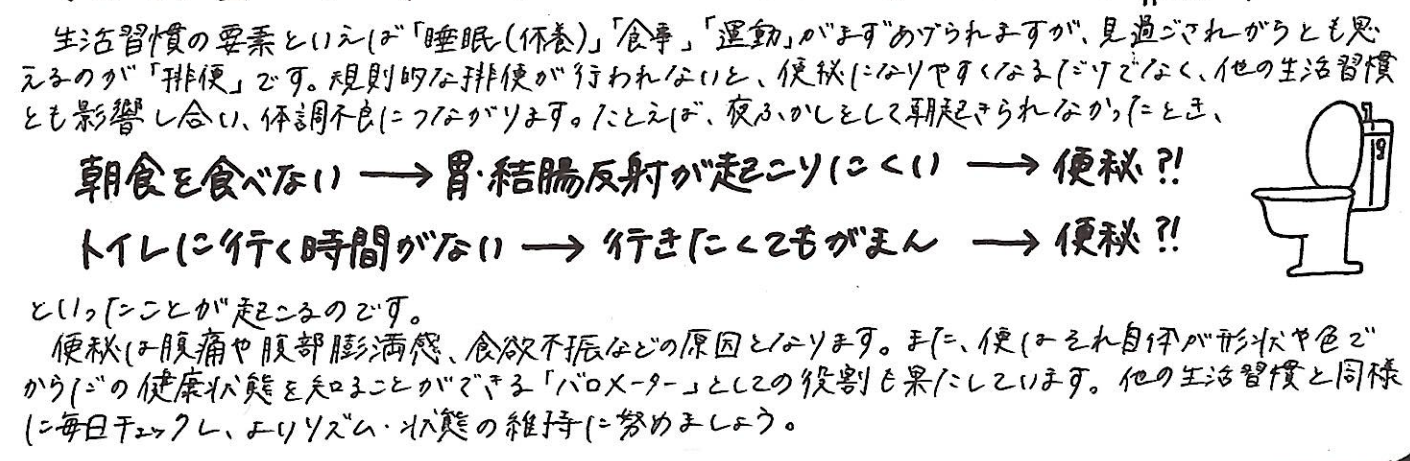 生活習慣の要素といえば「睡眠(休養)」「食事」「運動」がまずあげられますが、見過ごされがちとも思
えるのが「排便」です。規則的な排便が行われないと、便秘になりやすくなるだけでなく、他の生活習慣
とも影響し合い、体調不良につながります。たとえば、夜ふかしをして朝起きられなかったとき、
朝食を食べない → 胃・結腸反射が起こりにくい → 便秘?!
トイレに行く時間がない → 行きたくてもがまん → 便秘?!
といったことが起こるのです。
便秘は腹痛や腹部膨満感、食欲不振などの原因となります。また、便はそれ自体が形状や色で
からだの健康状態を知ることができる「バロメーター」としての役割も果たしています。他の生活習慣と同様
に毎日チェックし、よいリズム・状態の維持に努めましょう。